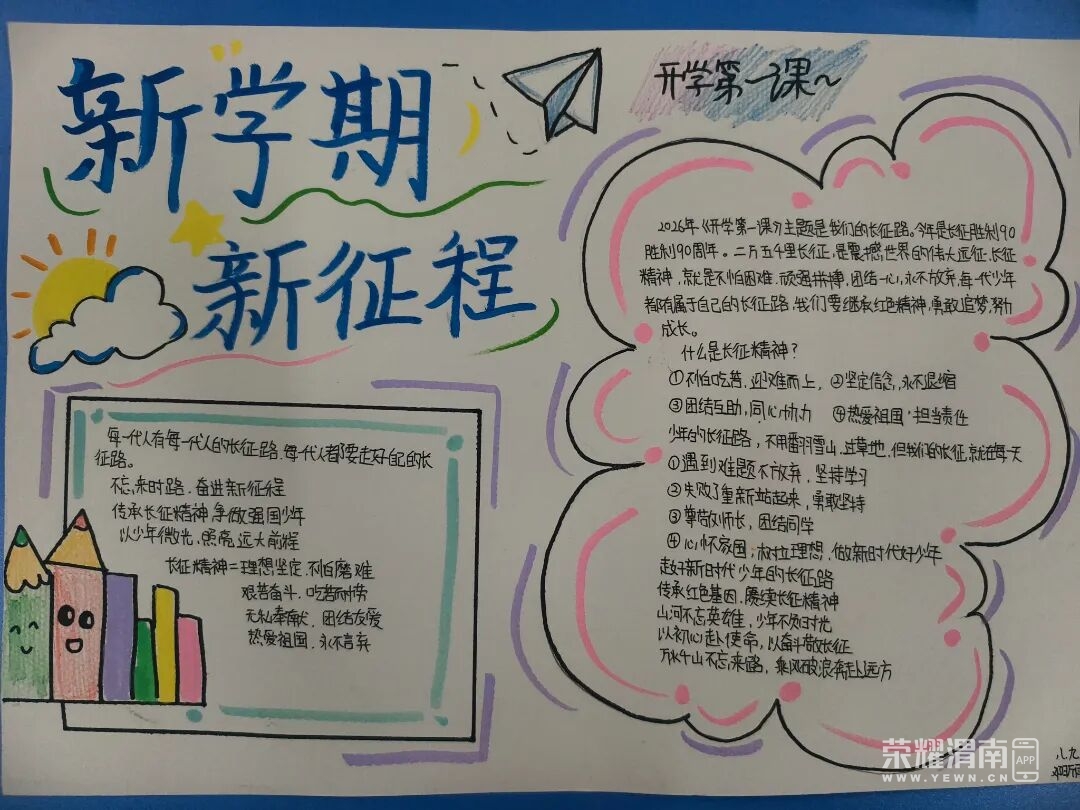 新学期
新征程
开学第一课~
每一代人有每一代人的长征路,每一代人都要走好自己的长
征路。
不忘来时路,奋进新征程
传承长征精神 争做强国少年
以少年微光,照亮远大前程
长征精神=理想坚定,不怕磨难
艰苦奋斗,吃苦耐劳
无私奉献,团结友爱
热爱祖国,永不言弃
2026年《开学第一课》主题是我们的长征路。今年是长征胜利90
胜利90周年。二万五千里长征,是震撼世界的伟大远征,长征
精神,就是不怕困难,顽强拼搏,团结一心,永不放弃,每一代少年
都有属于自己的长征路,我们要继承红色精神,勇敢追梦,努力
成长。
什么是长征精神?
①不怕吃苦,迎难而上,②坚定信念,永不退缩
③团结互助,同心协力 ④热爱祖国,担当责任
少年的长征路,不用翻雪山,过草地,但我们的长征,就在每一天
①遇到难题不放弃,坚持学习
②失败了重新站起来,勇敢坚持
③尊敬师长,团结同学
④心怀家国,树立理想,做新时代好少年
走好新时代少年的长征路
传承红色基因,赓续长征精神
山河不忘英雄,少年不负时光
以初心赴使命,以奋斗敬长征
万水千山不忘来路,乘风破浪奔赴远方
八九
荣耀渭南 APP
WWW.YEWN.CN